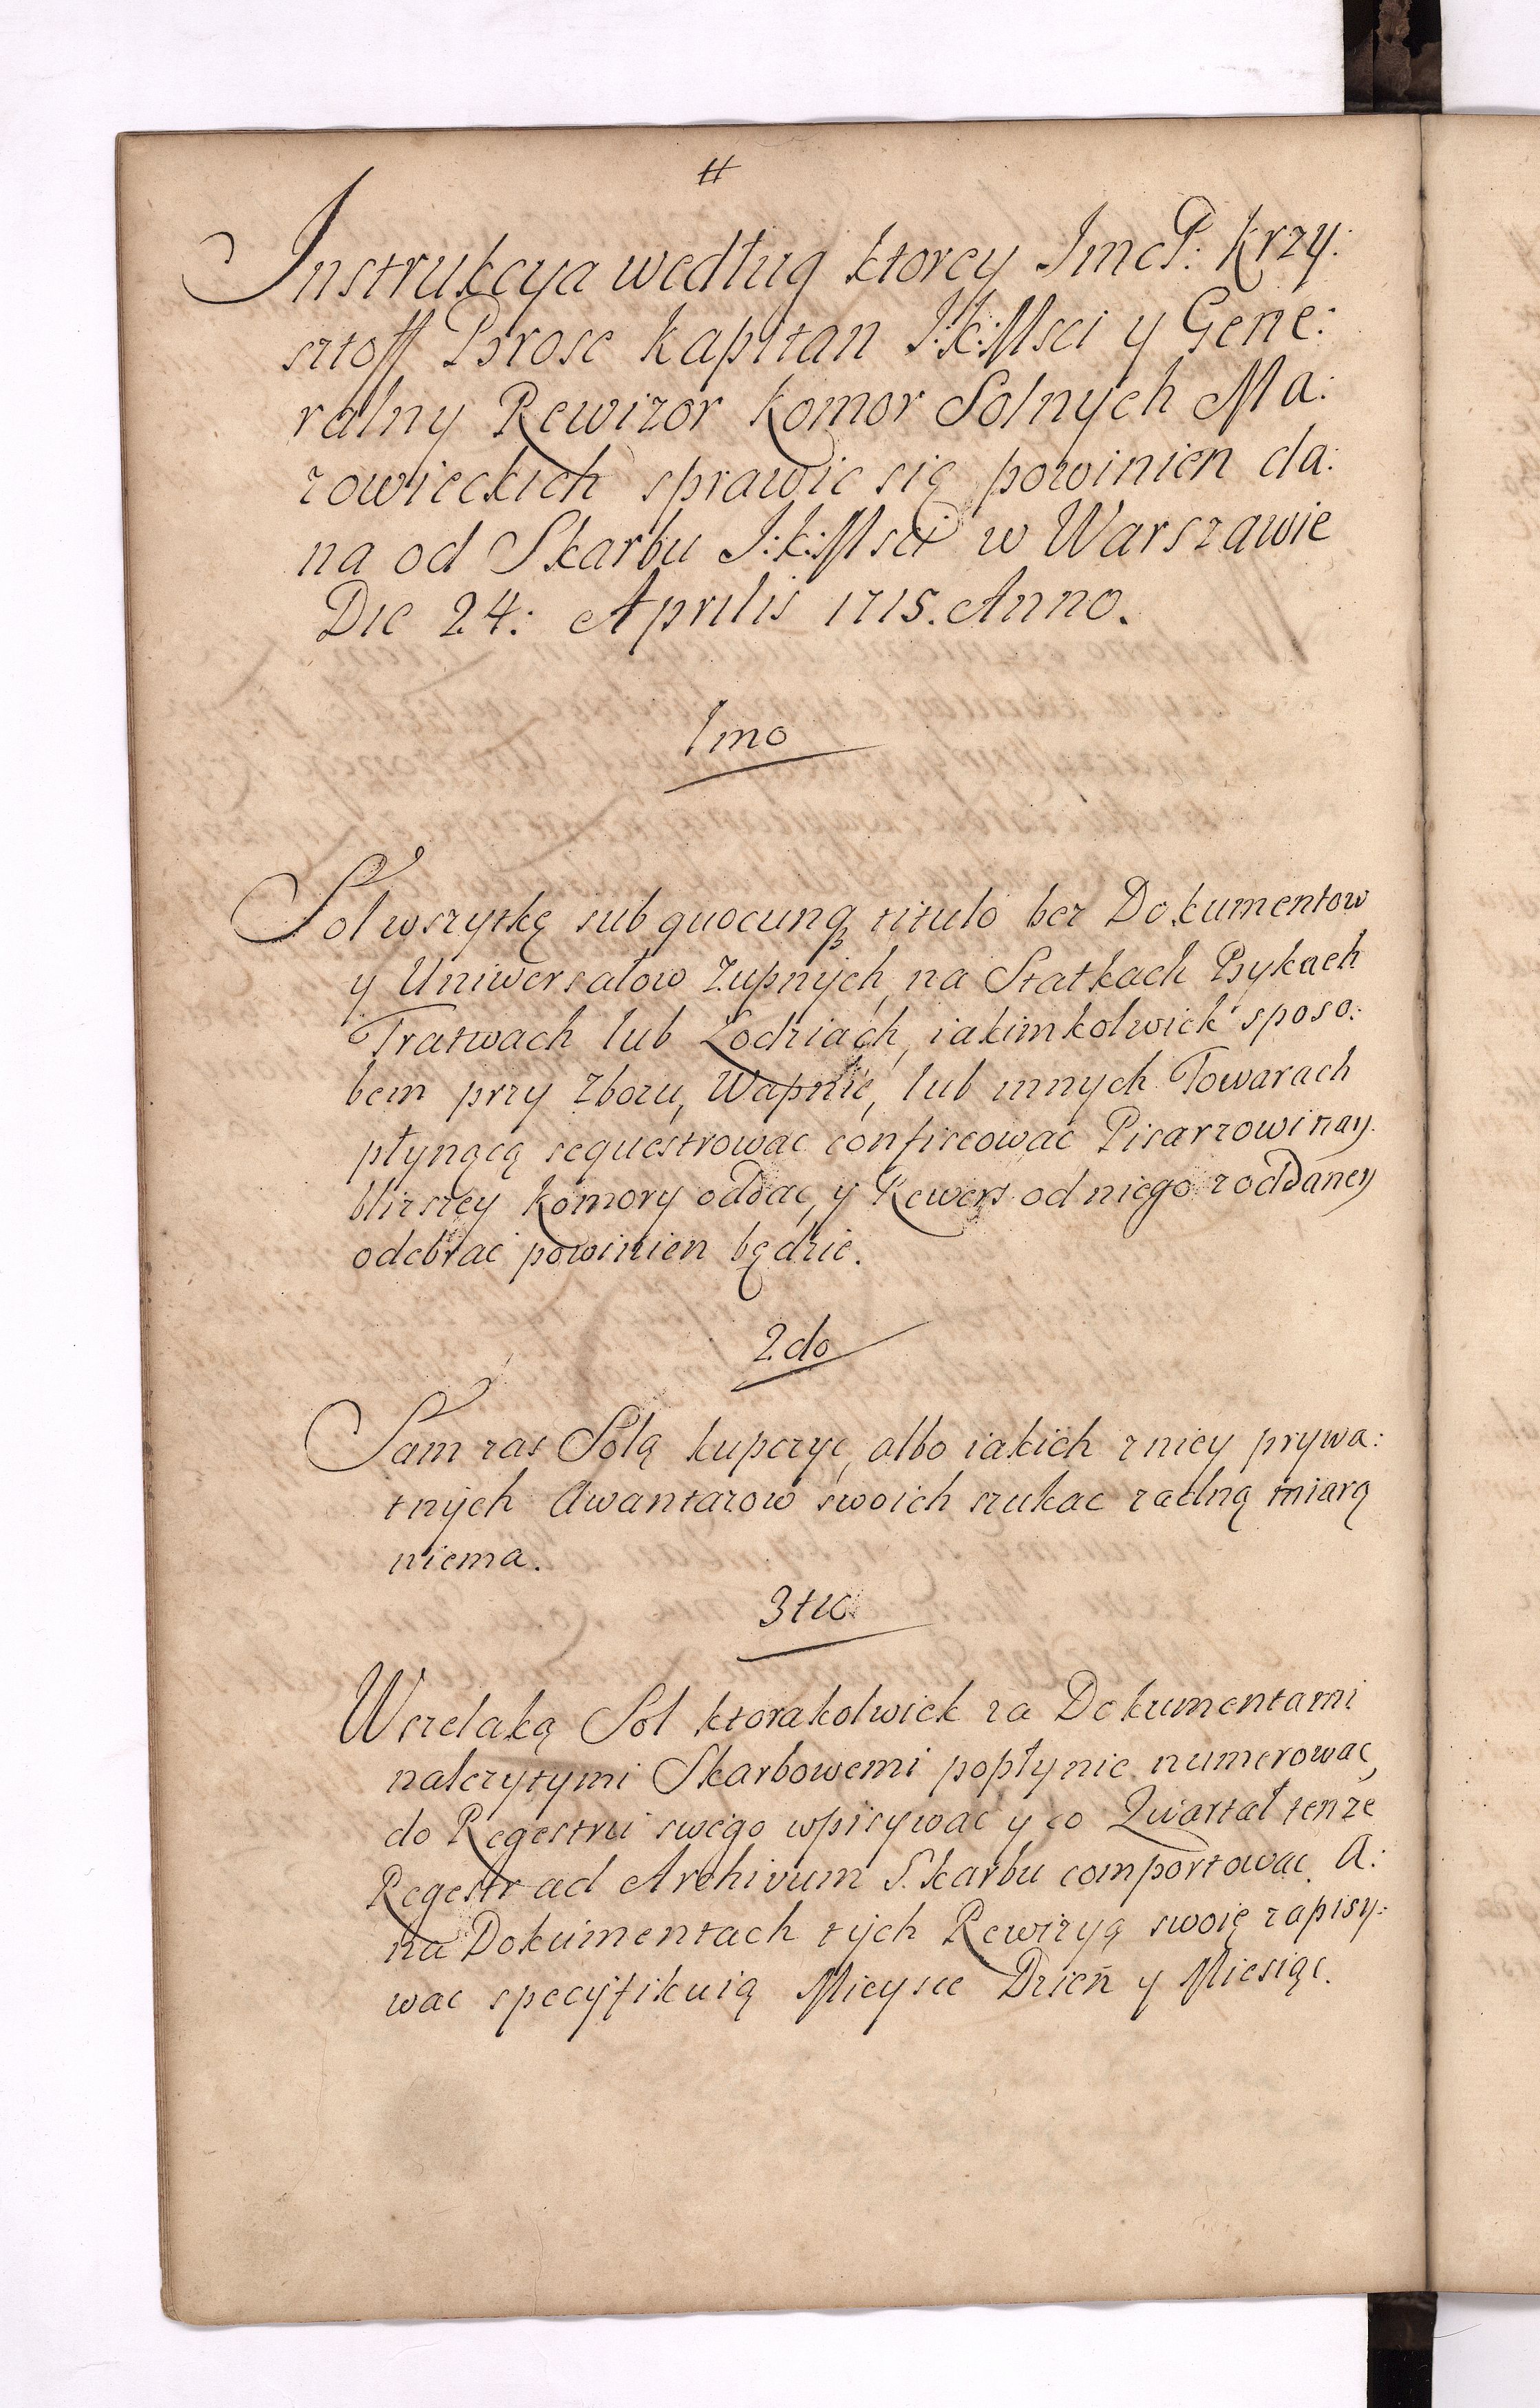 #
Instrukcya według ktorey Imć P: Krzy:
sztoff Brose Kapitan J:K:Msci y Gene:
ralny Rewizor Komor Solnych Ma:
zowieckich sprawic się powinien da:
na od Skarbu J:K:Msci w Warszawie
Die 24: Aprilis 1715. Anno.
1mo
Sol wszytkę sub quocunq titulo bez Dokumentow
y Uniwersałow Zupnych, na Statkach Bykach
Tratwach lub Łodziach, iakimkolwiek sposo:
bem przy Zbozu, Wapnie, lub innych Towarach
płynącą sequestrowac confiscowac Pisarzowi nay
blizszey Komory oddac, y Rewers od niego z oddaney
odebrac powinien będzie.
2do
Sam zas Solą kupczyc, albo iakich z niey prywa:
tnych Awantazow swoich szukac zadną miarą
niema.
3tio
Wszelaką Sol ktorakolwiek za Dokumentami
nalezytymi Skarbowemi popłynie numerowac,
do Regestru swego wpisywac y co Quartał tenze
Regestr ad Archivum Skarbu comportowac. A:
na Dokumentach tych Rewizyą swoię zapisy:
wac specyfikuią Mieysce Dzień y Miesiąc.